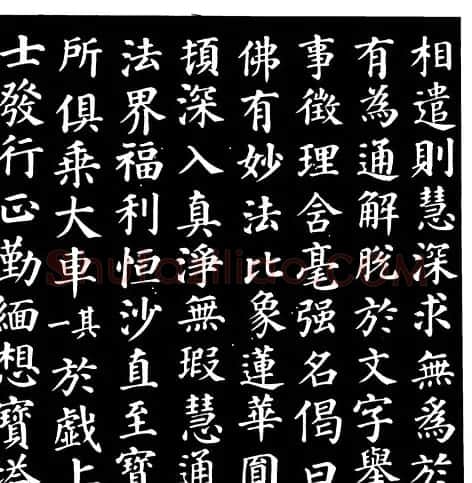 相遣則慧深求無為於
有為通解脫於文字舉
事徵理含毫强名偈曰
佛有妙法比象蓮華圓
頓深入真淨無瑕慧通
法界福利恒沙直至寶
所俱乘大車其一於戲上
士發行正勤緬想寶塔
Shufaziliao.COM